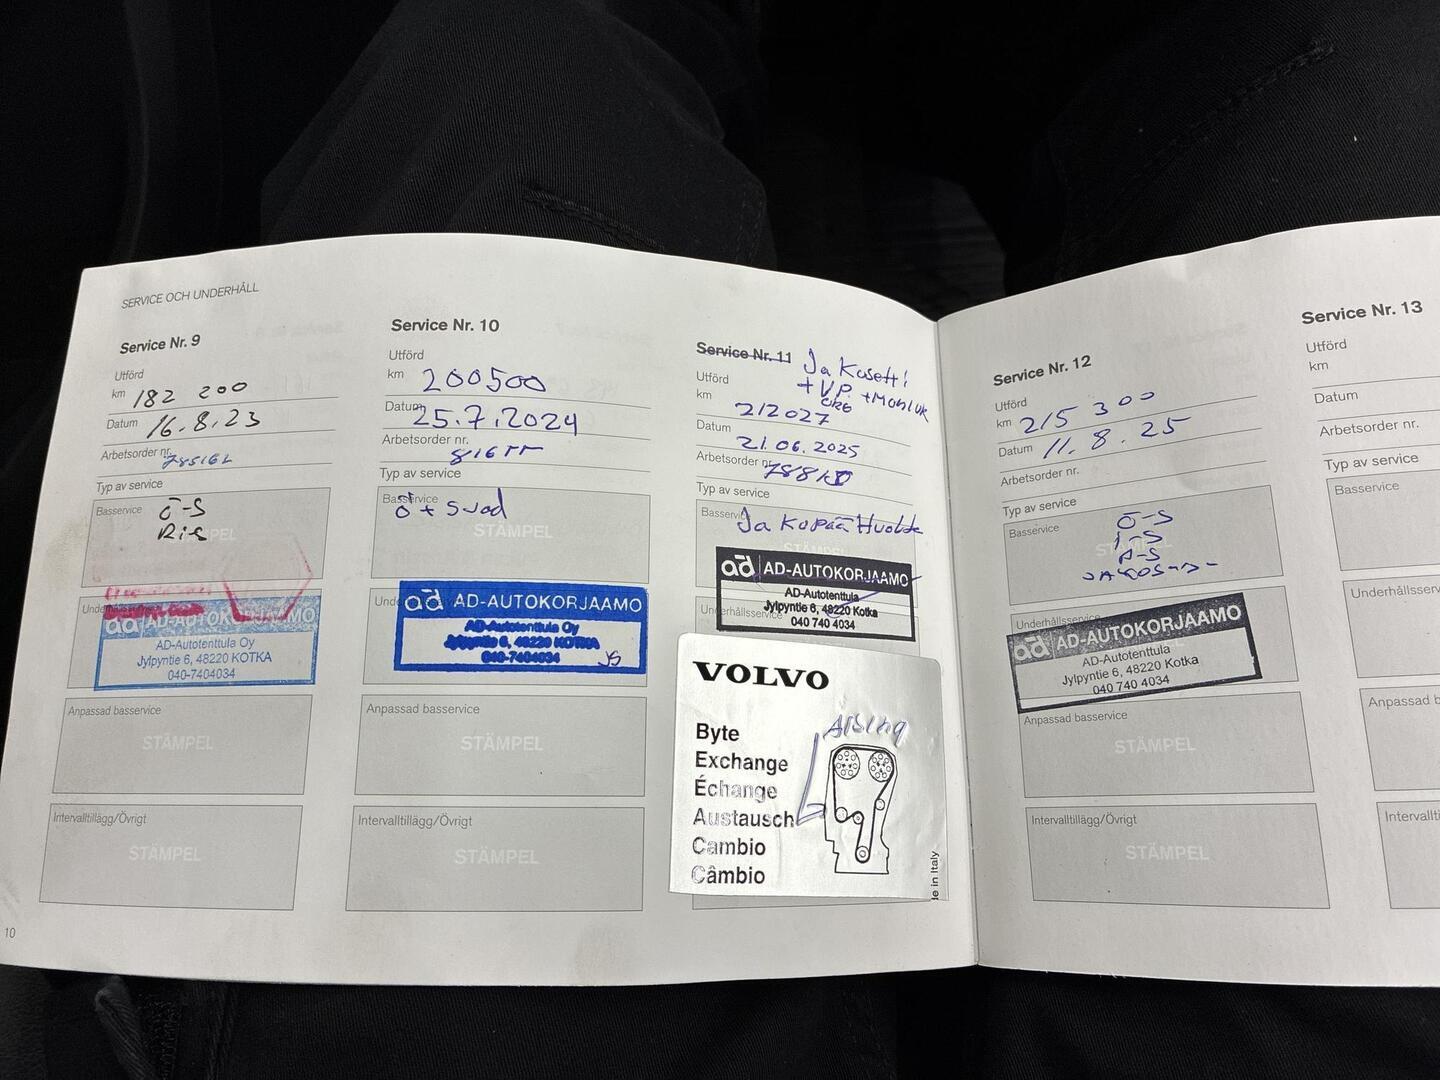 SERVICE OCH UNDERHÅLL
Service Nr. 9
Utförd
km 182 200
Datum 16.8.23
Arbetsorder nr.
Typ av service
Basservice
Ö-S
STÄMPEL
AD-AUTOKORJAAMO
AD-Autotenttula Oy
Jylpyntie 6, 48220 KOTKA
040-7404034
Anpassad basservice
STÄMPEL
Intervalltillägg/Övrigt
STÄMPEL
10
Service Nr. 10
Utförd
km 200500
Datum 25.7.2024
Arbetsorder nr.
Typ av service
Basservice
Ö + Suod
STÄMPEL
ad AD-AUTOKORJAAMO
AD-Autotenttula Oy
Jylpyntie 6, 48220 KOTKA
040-7404034
JS
Anpassad basservice
STÄMPEL
Intervalltillägg/Övrigt
STÄMPEL
Service Nr. 11
Jakosetti
+ V.P.
Utförd
km 212027
Datum
21.06.2025
Arbetsorder nr.
Typ av service
Basservice
Jakopää Huolto
ad AD-AUTOKORJAAMO
AD-Autotenttula
Jylpyntie 6, 48220 Kotka
040 740 4034
Underhållsservice
VOLVO
Byte
Exchange
Échange
Austausch
Cambio
Câmbio
AISING
de in Italy
Service Nr. 12
Utförd
km 215 300
Datum 11.8.25
Arbetsorder nr.
Typ av service
Basservice
Ö-S
I-S
STÄMPEL
Underhållsservice
ad AD-AUTOKORJAAMO
AD-Autotenttula
Jylpyntie 6, 48220 Kotka
040 740 4034
Anpassad basservice
STÄMPEL
Intervalltillägg/Övrigt
STÄMPEL
Service Nr. 13
Utförd
km
Datum
Arbetsorder nr.
Typ av service
Basservice
Underhållserv
Anpassad b
Intervallti